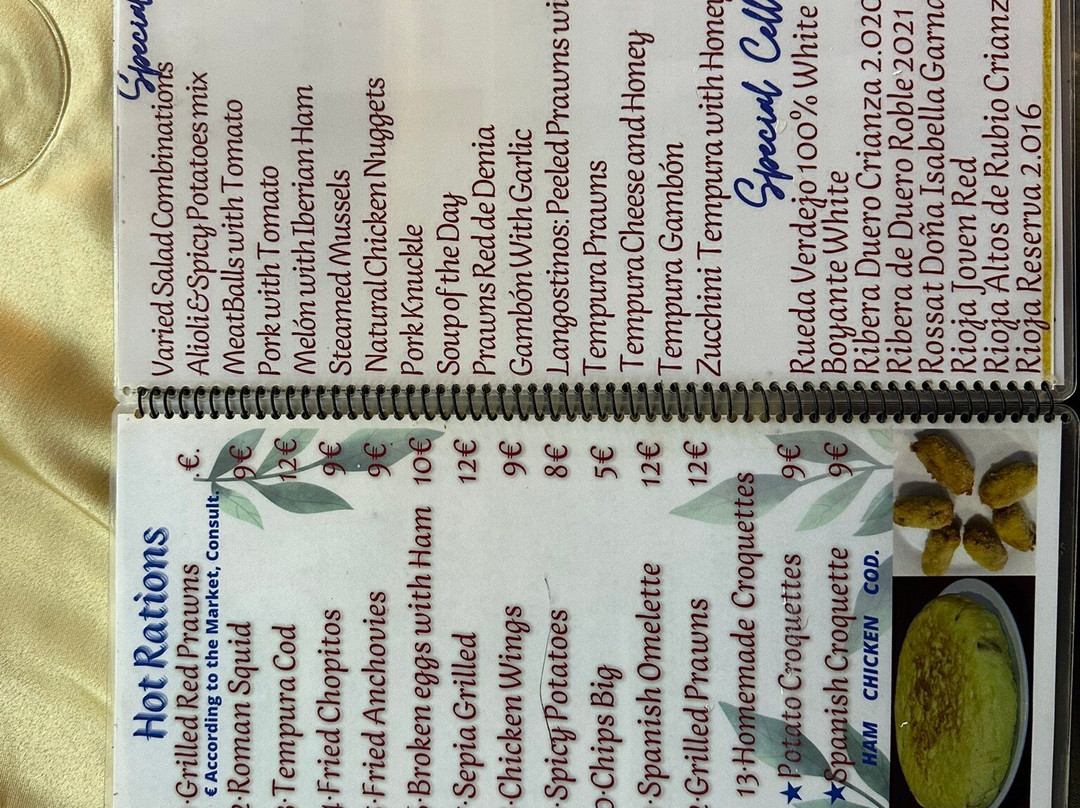 Hot Rations
·Grilled Red Prawns €.
€ According to the Market, Consult.
·Roman Squid 9€
·Tempura Cod 12€
·Fried Chopitos 9€
·Fried Anchovies 9€
·Broken eggs with Ham 10€
·Sepia Grilled 12€
·Chicken Wings 9€
·Spicy Potatoes 8€
·Chips Big 5€
·Spanish Omelette 12€
·Grilled Prawns 12€
13·Homemade Croquettes
★Potato Croquettes 9€
★Spanish Croquette 9€
HAM CHICKEN COD.
Special
Varied Salad Combinations
Alioli & Spicy Potatoes mix
MeatBalls with Tomato
Pork with Tomato
Melón with Iberian Ham
Steamed Mussels
Natural Chicken Nuggets
Pork Knuckle
Soup of the Day
Prawns Red de Denia
Gambón With Garlic
Langostinos: Peeled Prawns
Tempura Prawns
Tempura Cheese and Honey
Tempura Gambón
Zucchini Tempura with Honey
Special
Rueda Verdejo 100% White
Boyante White
Ribera Duero Crianza 2.020
Ribera de Duero Roble 2021
Rossat Doña Isabella
Rioja Joven Red
Rioja Altos de Rubio
Rioja Reserva 2.016